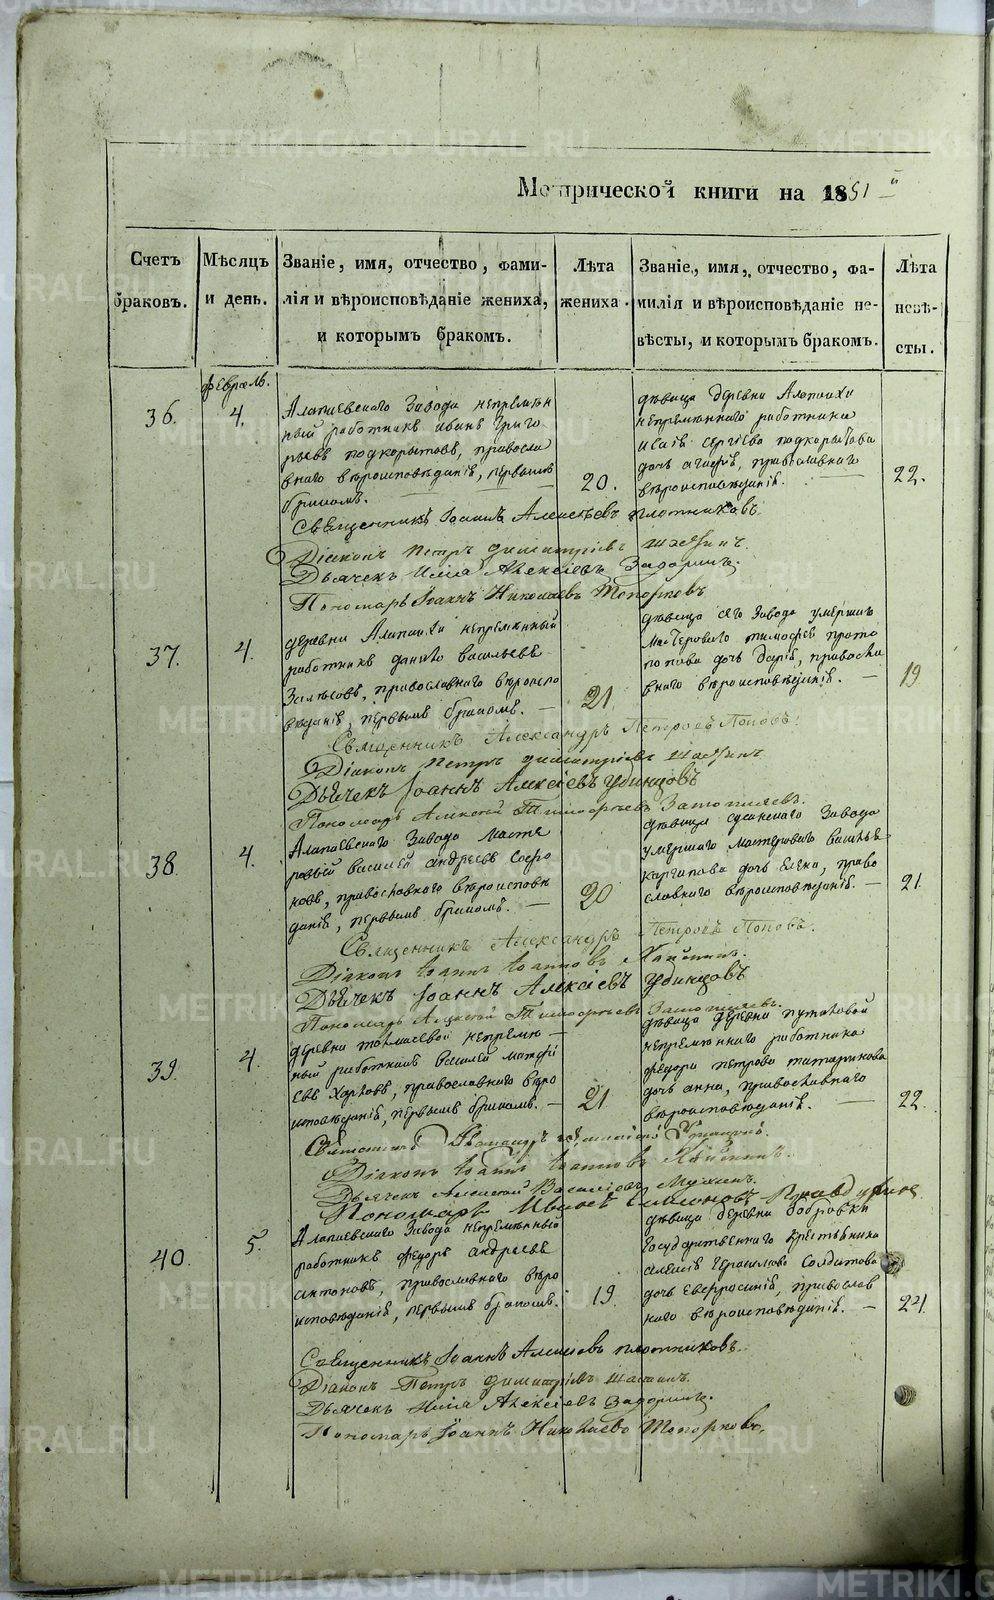 Метрической книги на 1851й
Счетъ браковъ.
Мѣсяцъ и день.
Званіе, имя, отчество, фами-
лія и вѣроисповѣданіе жениха,
и которымъ бракомъ.
Лѣта
жениха.
Званіе, имя, отчество, фа-
милія и вѣроисповѣданіе не-
вѣсты, и которымъ бракомъ.
Лѣта
невѣ-
сты.
Февраль.
36.
4.
Алапаевскаго Завода непремѣн
ный работникъ иванъ Григо
рьевъ подкорытовъ, правосла
внаго вѣроисповѣданія, первымъ
бракомъ.
20.
дѣвица деревни Алапаихи
непремѣннаго работника
исаія сергіева подкорытова
дочь агафія, православнаго
вѣроисповѣданія.
22.
Священникъ Іоаннъ Алексѣевъ плотниковъ.
Діаконъ петръ димитріевъ
Дьячекъ Илія Алексіевъ Задоринъ.
Пономарь Іоаннъ Николаевъ Топорковъ
37.
4.
деревни Алапаихи непремѣнный
работникъ данило васильевъ
православнаго вѣроиспо
вѣданія, первымъ бракомъ. —
21
дѣвица сего Завода умершаго
мастероваго тимофея прото
попова дочь дарія, правосла
внаго вѣроисповѣданія. —
19
Священникъ Александръ Петровъ Поповъ.
Діаконъ петръ димитріевъ
Дьячекъ Іоаннъ Алексіевъ Удинцовъ
Пономарь Алексѣй Тимофеевъ Затопляевъ.
38.
4.
Алапаевскаго Завода масте
ровый василей андреевъ софро
новъ, православнаго вѣроисповѣ
данія, первымъ бракомъ. —
20
дѣвица Завода
умершаго мастероваго василья
каргапова дочь елена, право
славнаго вѣроисповѣданія. —
21
Священникъ Александръ Петровъ Поповъ.
Діаконъ Іоаннъ Іоанновъ
Дьячекъ Іоаннъ Алексіевъ Удинцовъ
Пономарь Алексѣй Тимофеевъ Затопляевъ.
39.
4.
деревни толмачевой непремѣн —
ный работникъ василей матфі
евъ Харловъ, православнаго вѣро
исповѣданія, первымъ бракомъ. —
21
дѣвица деревни путиловой
непремѣннаго работника
федора петрова татаринова
дочь анна, православнаго
вѣроисповѣданія. —
22.
Діаконъ Іоаннъ Іоанновъ
Дьячекъ Алексѣй Васильевъ Мухинъ.
Пономарь Иванъ Симоновъ Правдухинъ
40.
5.
Алапаевскаго Завода непремѣнный
работникъ федоръ андреевъ
антоновъ, православнаго вѣро
исповѣданія, первымъ бракомъ.
19.
дѣвица деревни бобровки
государственнаго крестьянина
алексія Герасимова солдатова
дочь Евфросинія, православ
наго вѣроисповѣданія. —
24.
Священникъ Іоаннъ Алексіевъ плотниковъ.
Діаконъ Петръ димитріевъ
Дьячекъ Илія Алексіевъ Задоринъ.
Пономарь Іоаннъ Николаевъ Топорковъ,
METRIKI.GASO-URAL.RU